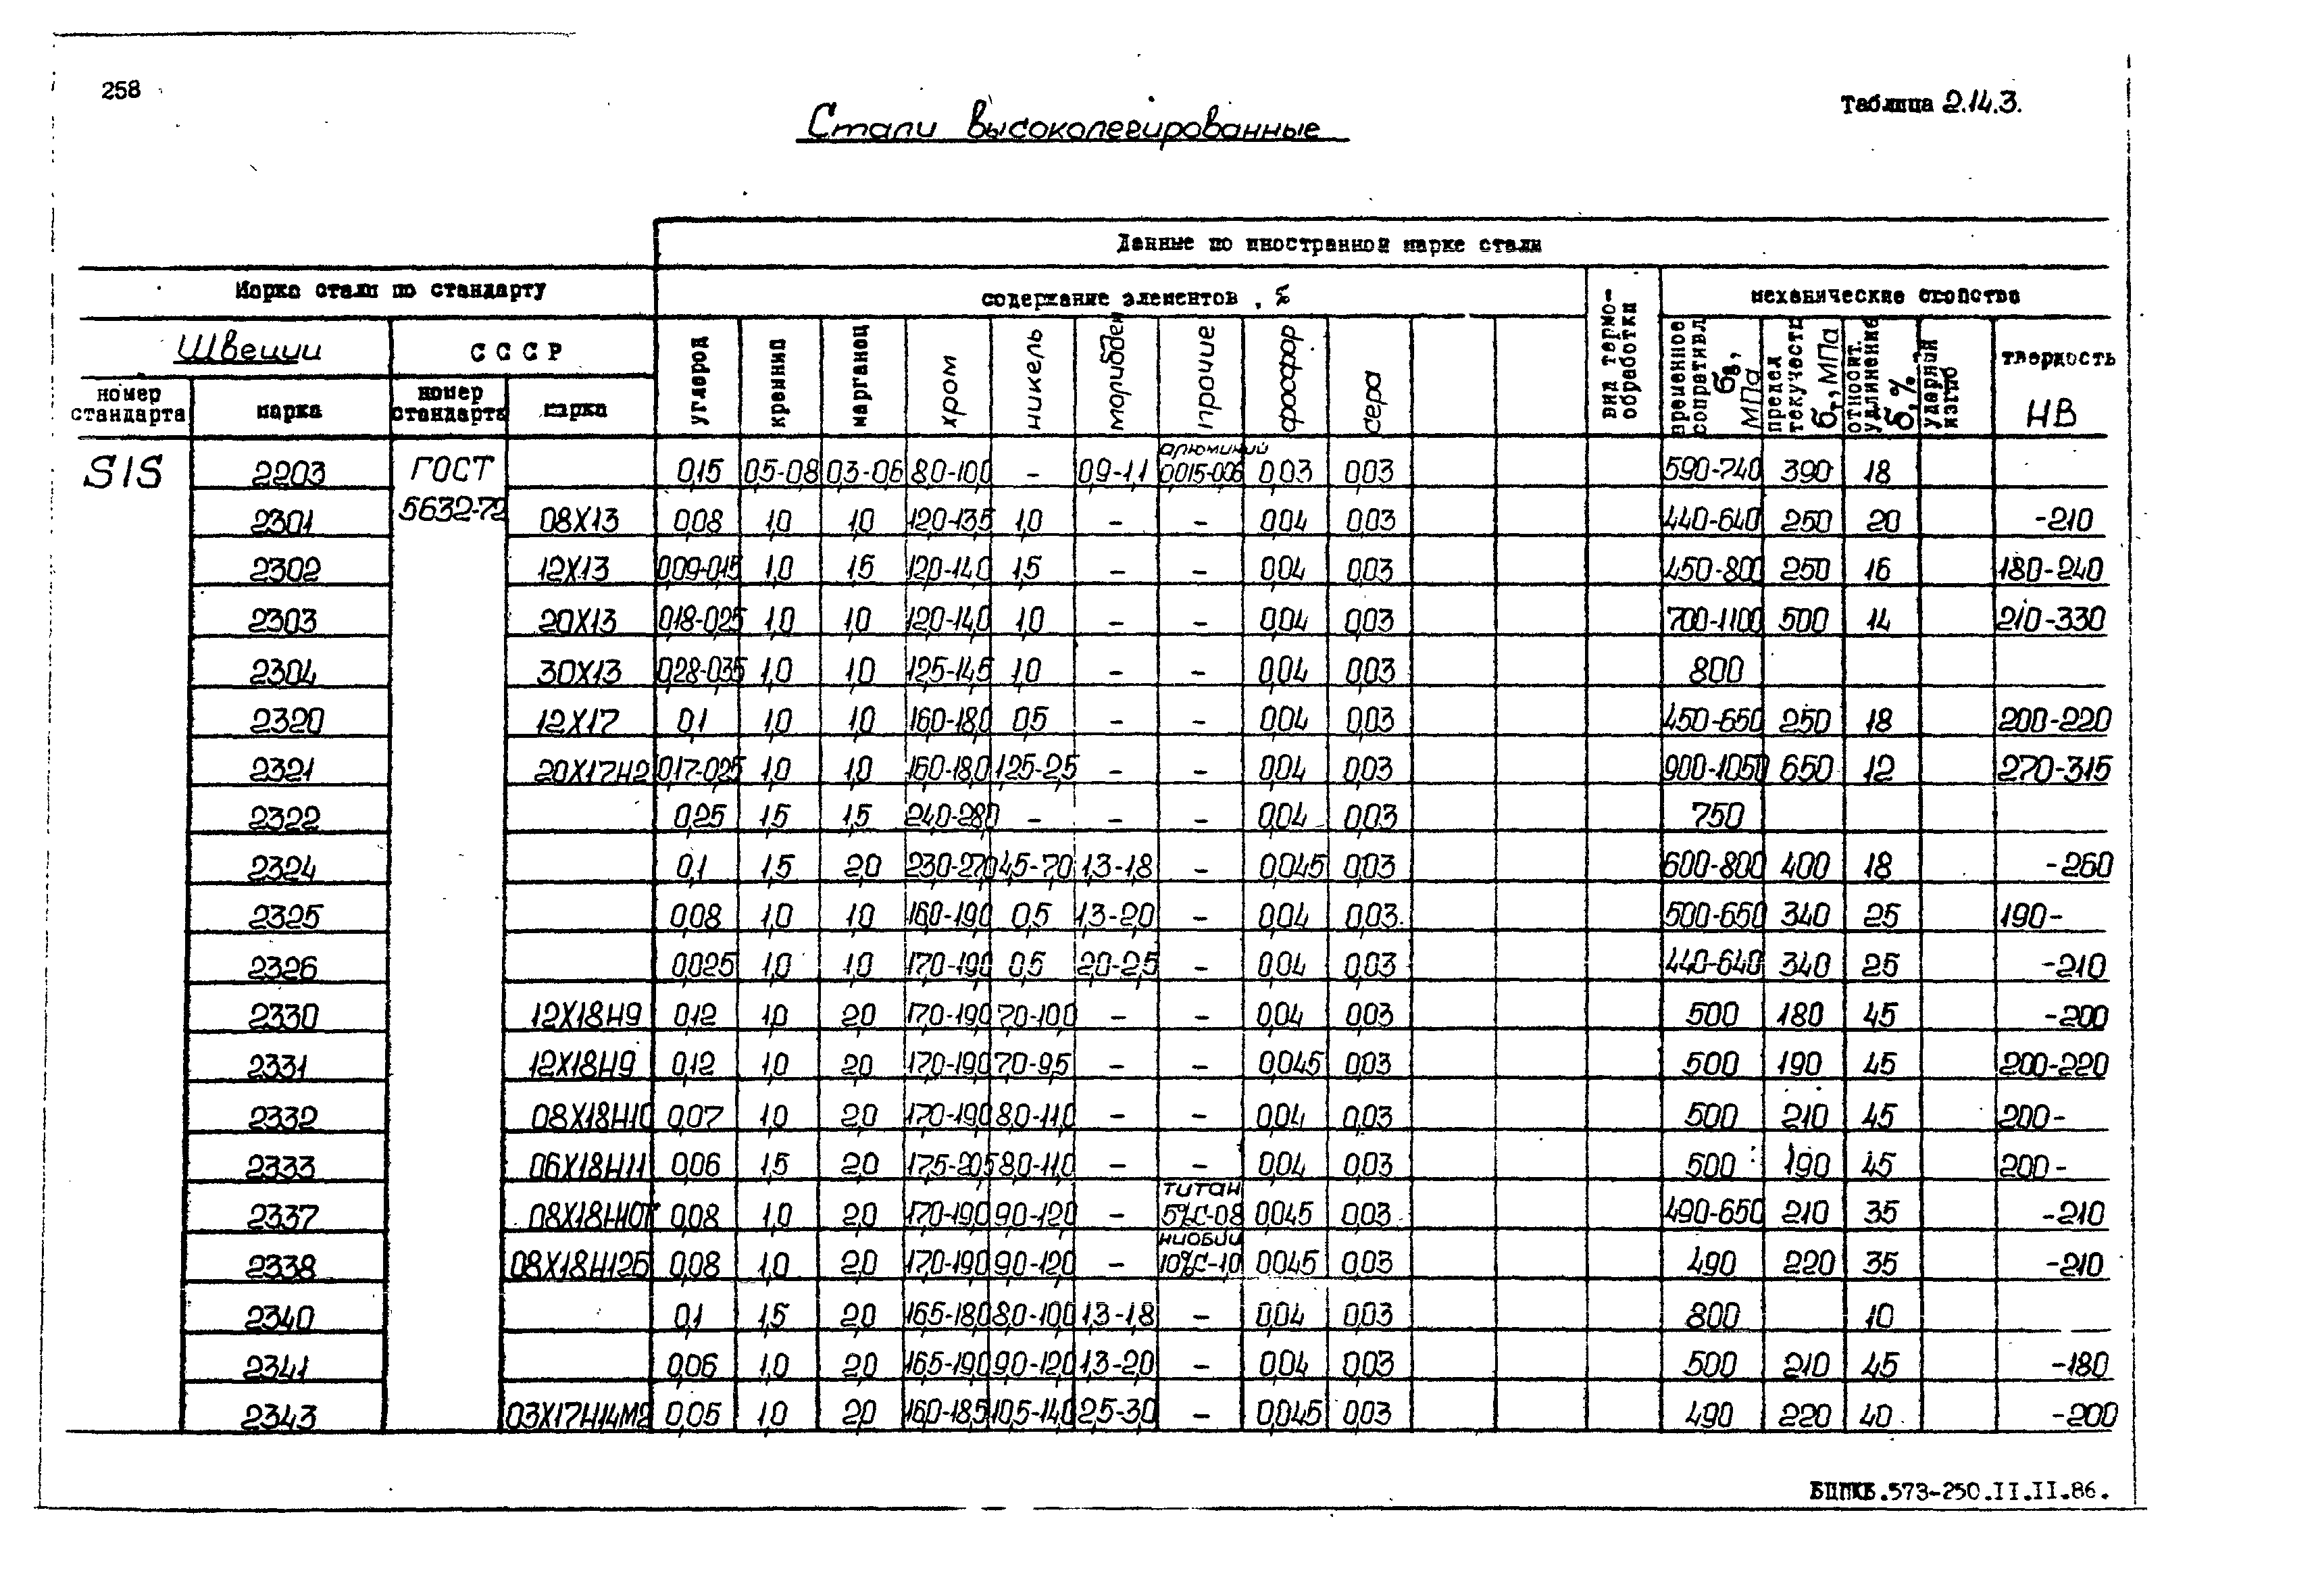 258
Таблица 2.14.3.
Стали высоколегированные
Данные по иностранной марке стали
Марка стали по стандарту
содержание элементов, %
вид термо-
обработки
механические свойства
Швеции
СССР
номер
стандарта
марка
номер
стандарта
марка
углерод
кремний
марганец
хром
никель
молибден
прочие
фосфор
сера
временное
сопротивл.
бв,
МПа
предел
текучести
бт, МПа
относит.
удлинение
б, %
ударный
изгиб
твердость
НВ
SIS 2203 ГОСТ 0,15 0,5-0,8 0,3-0,6 8,0-10,0 - 0,9-1,1 алюминий 0,015-0,06 0,03 0,03 590-740 390 18
5632-72
2301 08Х13 0,08 1,0 1,0 12,0-13,5 1,0 - - 0,04 0,03 440-640 250 20 -210
2302 12Х13 0,09-0,15 1,0 1,5 12,0-14,0 1,5 - - 0,04 0,03 450-800 250 16 180-240
2303 20Х13 0,18-0,25 1,0 1,0 12,0-14,0 1,0 - - 0,04 0,03 700-1100 500 14 210-330
2304 30Х13 0,28-0,35 1,0 1,0 12,5-14,5 1,0 - - 0,04 0,03 800
2320 12Х17 0,1 1,0 1,0 16,0-18,0 0,5 - - 0,04 0,03 450-650 250 18 200-220
2321 20Х17Н2 0,17-0,25 1,0 1,0 16,0-18,0 1,25-2,5 - - 0,04 0,03 900-1050 650 12 270-315
2322 0,25 1,5 1,5 24,0-28,0 - - - 0,04 0,03 750
2324 0,1 1,5 2,0 23,0-27,0 4,5-7,0 1,3-1,8 - 0,045 0,03 600-800 400 18 -260
2325 0,08 1,0 1,0 16,0-19,0 0,5 1,3-2,0 - 0,04 0,03 500-650 340 25 190-
2326 0,025 1,0 1,0 17,0-19,0 0,5 2,0-2,5 - 0,04 0,03 440-640 340 25 -210
2330 12Х18Н9 0,12 1,0 2,0 17,0-19,0 7,0-10,0 - - 0,04 0,03 500 180 45 -200
2331 12Х18Н9 0,12 1,0 2,0 17,0-19,0 7,0-9,5 - - 0,045 0,03 500 190 45 200-220
2332 08Х18Н10 0,07 1,0 2,0 17,0-19,0 8,0-11,0 - - 0,04 0,03 500 210 45 200-
2333 06Х18Н11 0,06 1,5 2,0 17,5-20,5 8,0-11,0 - - 0,04 0,03 500 190 45 200-
2337 08Х18Н10Т 0,08 1,0 2,0 17,0-19,0 9,0-12,0 - титан 5%С-0,8 0,045 0,03 490-650 210 35 -210
2338 08Х18Н12Б 0,08 1,0 2,0 17,0-19,0 9,0-12,0 - ниобий 10%С-1,0 0,045 0,03 490 220 35 -210
2340 0,1 1,5 2,0 16,5-18,0 8,0-10,0 1,3-1,8 - 0,04 0,03 800 10
2341 0,06 1,0 2,0 16,5-19,0 9,0-12,0 1,3-2,0 - 0,04 0,03 500 210 45 -180
2343 03Х17Н14М2 0,05 1,0 2,0 16,0-18,5 10,5-14,0 2,5-3,0 - 0,045 0,03 490 220 40 -200
БЦПКБ.573-250.II.II.86.